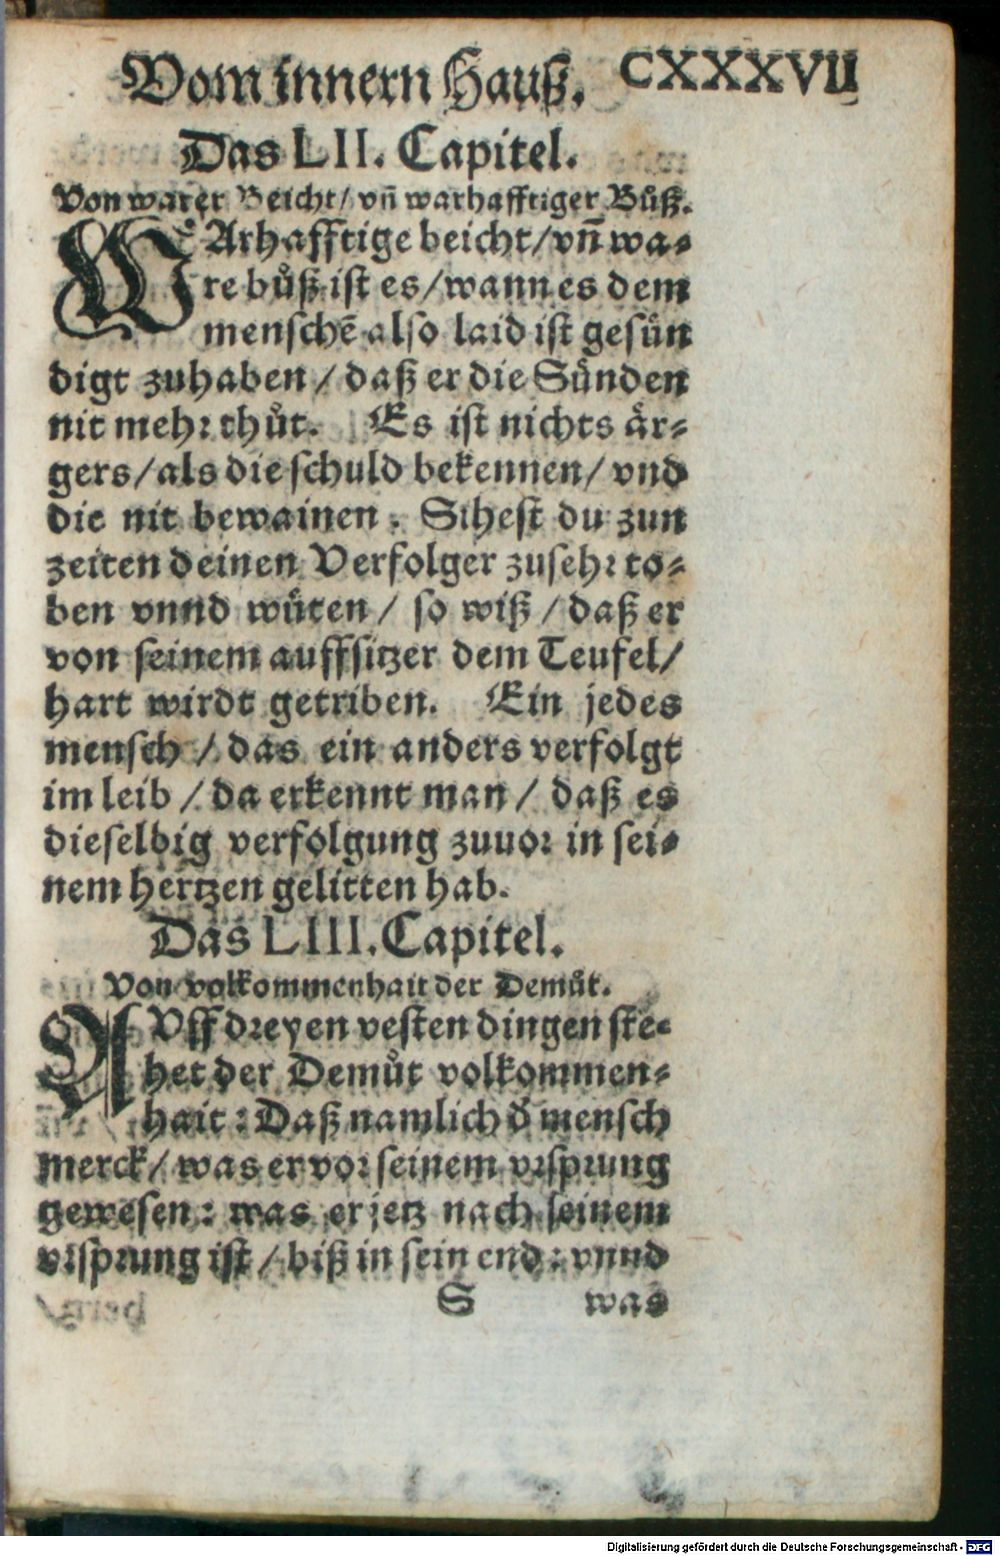 Vom innern Hauß. CXXXVII
Das LII. Capitel.
Von warer Beicht/ vñ warhafftiger Bůß.
WArhafftige beicht/ vñ wa⸗
re bůß ist es/ wann es dem
menschẽ also laid ist gesün
digt zuhaben / daß er die Sünden
nit mehr thůt. Es ist nichts är⸗
gers/ als die schuld bekennen/ vnd
die nit bewainen. Sihest du zun
zeiten deinen Verfolger zusehr to⸗
ben vnnd wüten / so wiß / daß er
von seinem auffsitzer dem Teufel/
hart wirdt getriben. Ein jedes
mensch / das ein anders verfolgt
im leib / da erkennt man / daß es
dieselbig verfolgung zuuor in sei⸗
nem hertzen gelitten hab.
Das LIII. Capitel.
Von volkommenhait der Demůt.
AVff dreyen vesten dingen ste⸗
het der Demůt volkommen⸗
hait: Daß namlich d̕ mensch
merck/ was er vor seinem vrsprung
gewesen: was er jetz nach seinem
vrsprung ist / biß in sein end: vnnd
S was
Digitalisierung gefördert durch die Deutsche Forschungsgemeinschaft - DFG